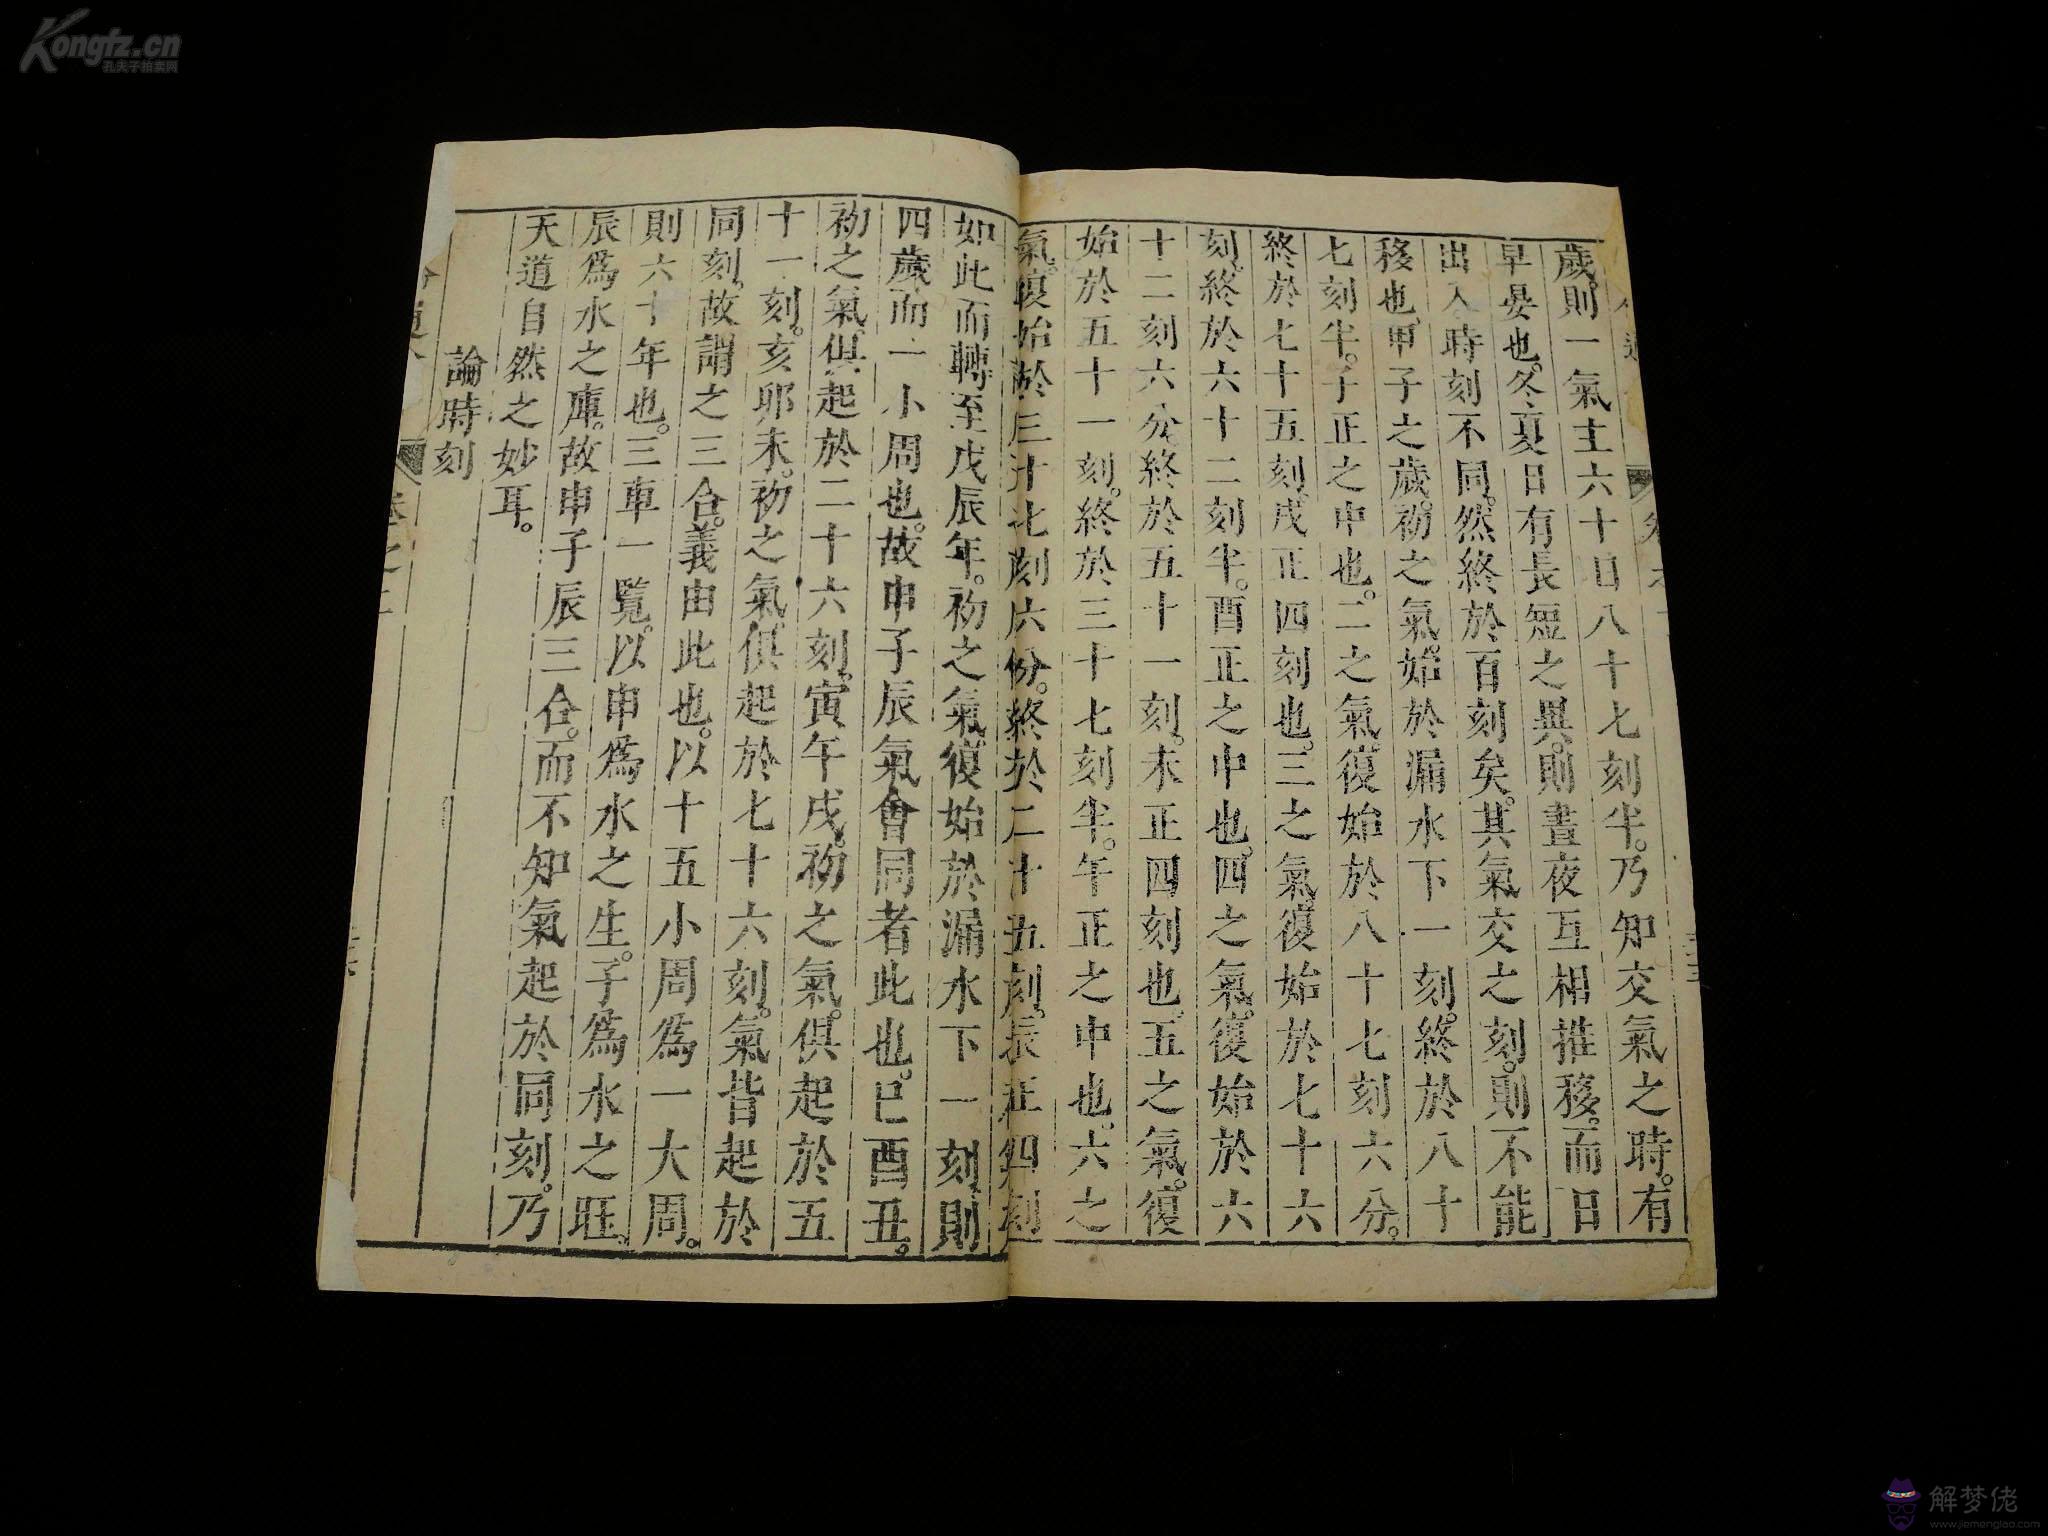 Kongfz.cn
孔夫子拍卖网
歲。則一氣主六十日八十七刻半。乃知交氣之時。有
早晏也。冬夏日有長短之異。則晝夜互相推移。而日
出入時刻不同。然終於百刻矣。其氣交之刻。則不能
移也。甲子之歲。初之氣。始於漏水下一刻。終於八十
七刻半。子正之中也。二之氣。復始於八十七刻六分。
終於七十五刻。戌正四刻也。三之氣。復始於七十六
刻。終於六十二刻半。酉正之中也。四之氣。復始於六
十二刻六分。終於五十一刻。未正四刻也。五之氣。復
始於五十一刻。終於三十七刻半。午正之中也。六之
氣。復始於三十七刻六份。終於二十五刻。辰正四刻
如此而轉至戊辰年。初之氣。復始於漏水下一刻。則
四歲而一小周也。故申子辰氣會同者此也。巳酉丑。
初之氣。俱起於二十六刻。寅午戌。初之氣。俱起於五
十一刻。亥卯未。初之氣。俱起於七十六刻。氣皆起於
同刻。故謂之三合。義由此也。以十五小周爲一大周。
則六十年也。三車一覽。以申爲水之生。子爲水之旺。
辰爲水之庫。故申子辰三合。而不知氣起於同刻。乃
天道自然之妙耳。
論時刻
卷之二
解梦佬
www.jiemenglao.com